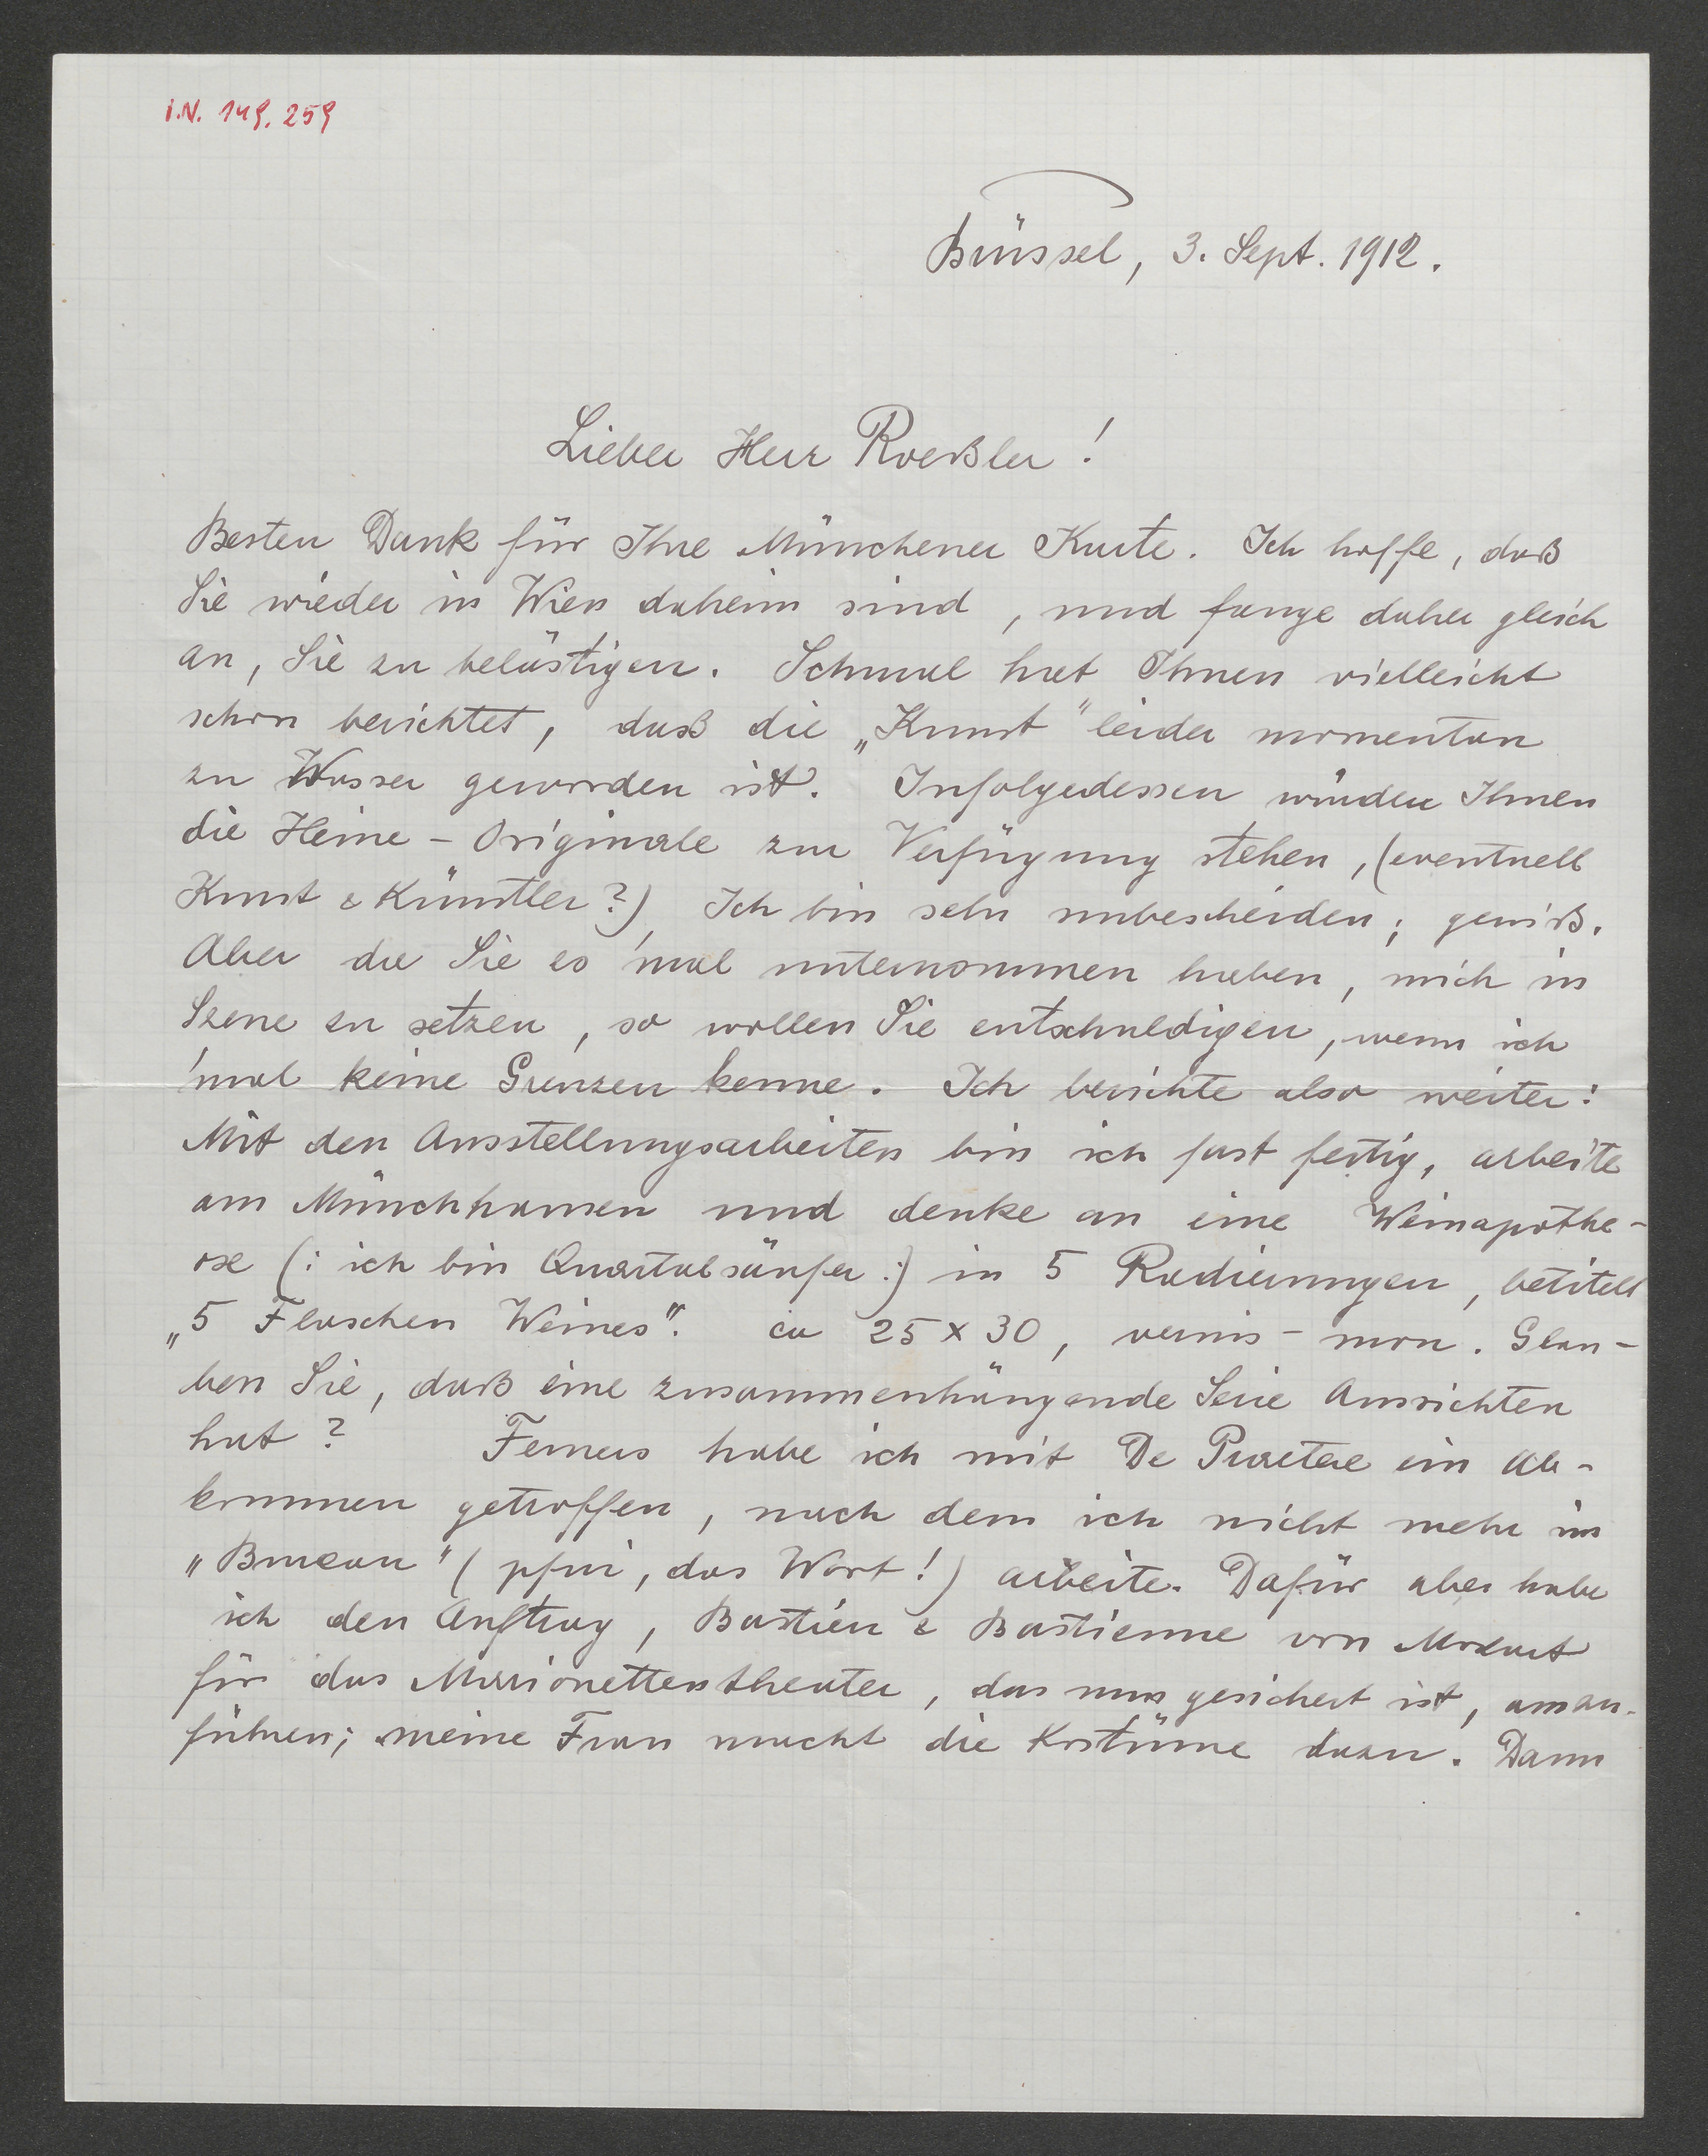 I.N. 149.259
Brüssel, 3. Sept. 1912.
Lieber Herr Roeßler!
Besten Dank für Ihre Münchener Karte. Ich hoffe, daß
Sie wieder in Wien daheim sind, und fange daher gleich
an, Sie zu belästigen. Schmal hat Ihnen vielleicht
schon berichtet, daß die „Kunst" leider momentan
zu Wasser geworden ist. Infolgedessen würden Ihnen
die Heine - Originale zur Verfügung stehen, (eventuell
Kunst & Künstler?) Ich bin sehr unbescheiden; gewiß.
Aber da Sie es 'mal unternommen haben, mich in
Szene zu setzen, so wollen Sie entschuldigen, wenn ich
'mal keine Grenzen kenne. Ich berichte also weiter:
Mit den Ausstellungsarbeiten bin ich fast fertig, arbeite
am Münchhausen und denke an eine Weinapothe-
ose (: ich bin Quartalsäufer :) in 5 Radierungen, betitelt
„5 Flaschen Weines". ca 25 x 30, vernis - mou. Glau-
ben Sie, daß eine zusammenhängende Serie Aussichten
hat? Ferners habe ich mit De Praetere ein Ab-
kommen getroffen, nach dem ich nicht mehr im
"Bureau" (pfui, das Wort!) arbeite. Dafür aber habe
ich den Auftrag, Bastien & Bastienne von Mozart
für das Marionettentheater, das nun gesichert ist, auszu-
führen; meine Frau macht die Kostüme dazu. Dann